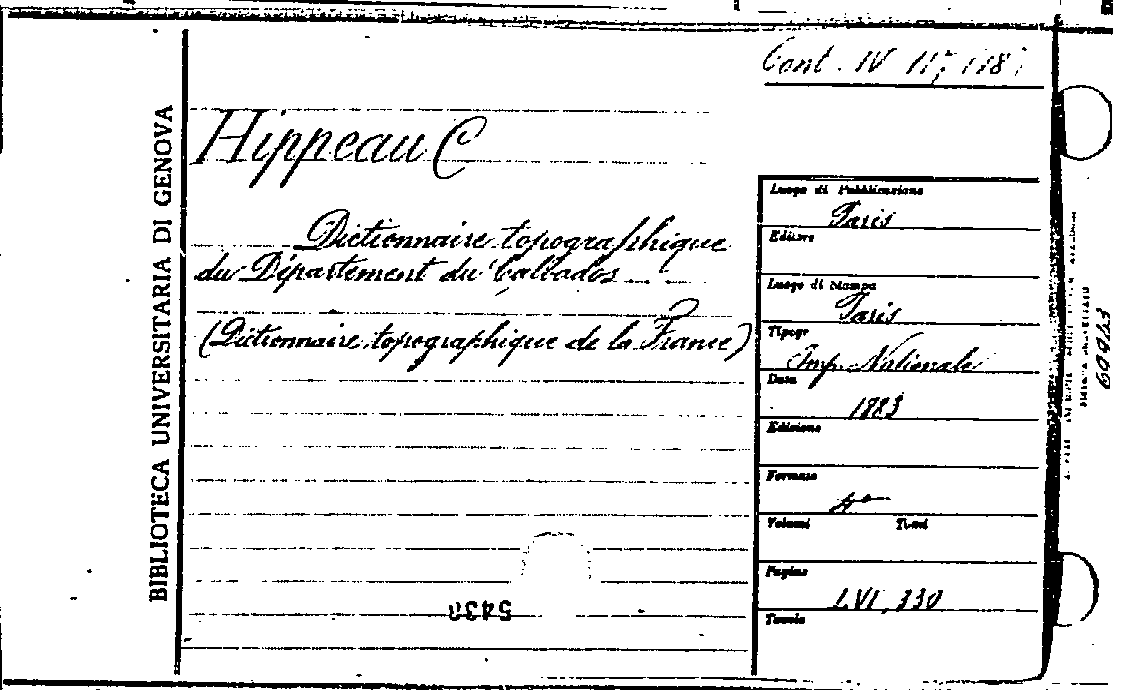 Cont. IV
BIBLIOTECA UNIVERSITARIA DI GENOVA
Hippeau C
Dictionnaire topographique
du Département du Calvados
(Dictionnaire topographique de la France)
Luogo di Pubblicazione
Paris
Editore
Luogo di Stampa
Paris
Tipogr
Imp. Nationale
Data
1883
Edizione
Formato
4°
Volumi Tomi
Pagine
LVI, 330
Tavole
699/13